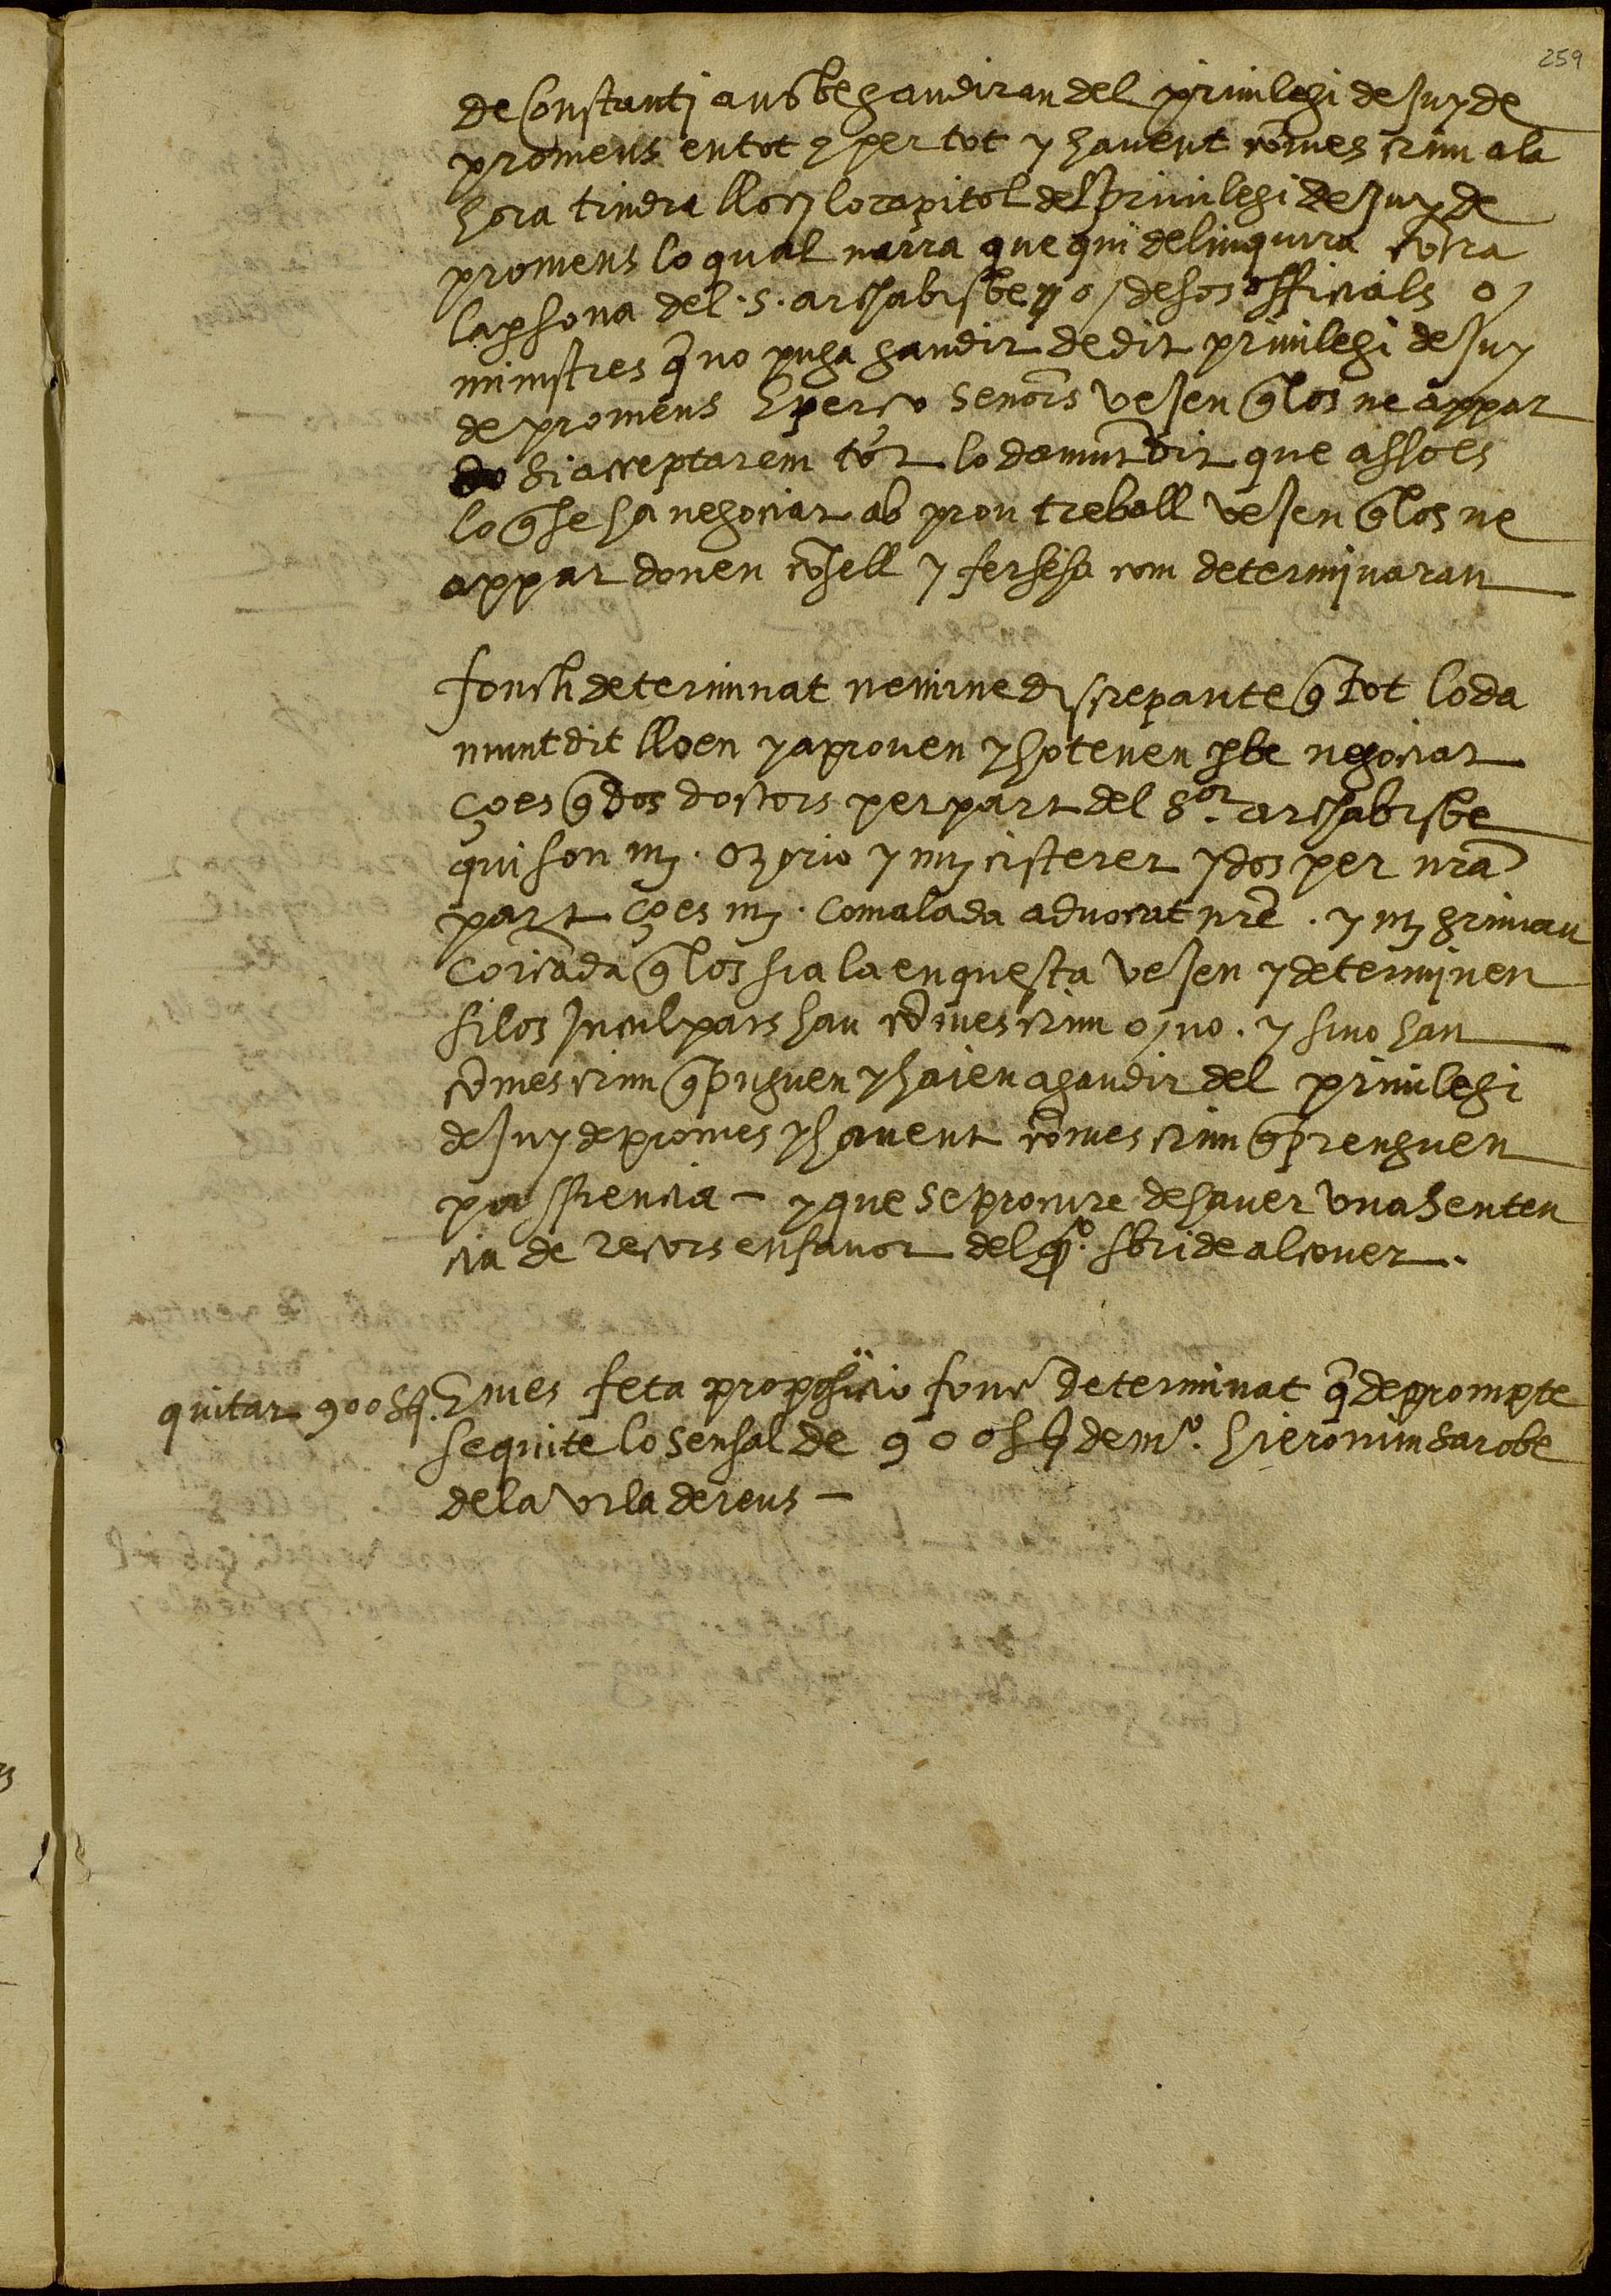 259
de Constantj ans be gaudiran del priuilegi de Juy de
promens en tot y per tot y hauent comes crim a la
hora tindra lloch lo capitol del priuilegi de Juy de
promens lo qual narra que qui delinquira cõtra
la psona del .S. archabisbe o de sos officials o
ministres q̃ no puga gaudir de dit priuilegi de Juy
de promens E per ço Senors veJen q̃ los ne appar
si acceptarem tot lo damunt dit que asso es
lo q̃ se ha negociat ab prou treball veJen q̃ los ne
appar donen cõsell y fer se ha com determinaran
fonch determinat nemine discrepante q̃ tot lo da
munt dit lloen y aprouen y ho tenen p be negociat
ço es q̃ dos doctors per part del S.or archabisbe
qui son mj. Ozorio y mj cisterer y dos per nrã
part ço es mj. Comalada aduocat nrẽ. y mj grimau
Coricada q̃ los sia la enquesta veJen y determinen
si los Jnculpats han cõmes crim o no. y si no han
cõmes crim q̃ puguen y haien a gaudir del priuilegi
de Juy de promes y hauent cõmes crim q̃ prenguen
passiencia – y que se procure de hauer vna senten
cia de recors en fauor del q.º sbri de alcouer.
quitar 900 s q. E mes feta proposicio fonc determinat q̃ de prompte
se quite lo sensal de 900 s q de mº. hieronim sarobe
de la vila de reus –